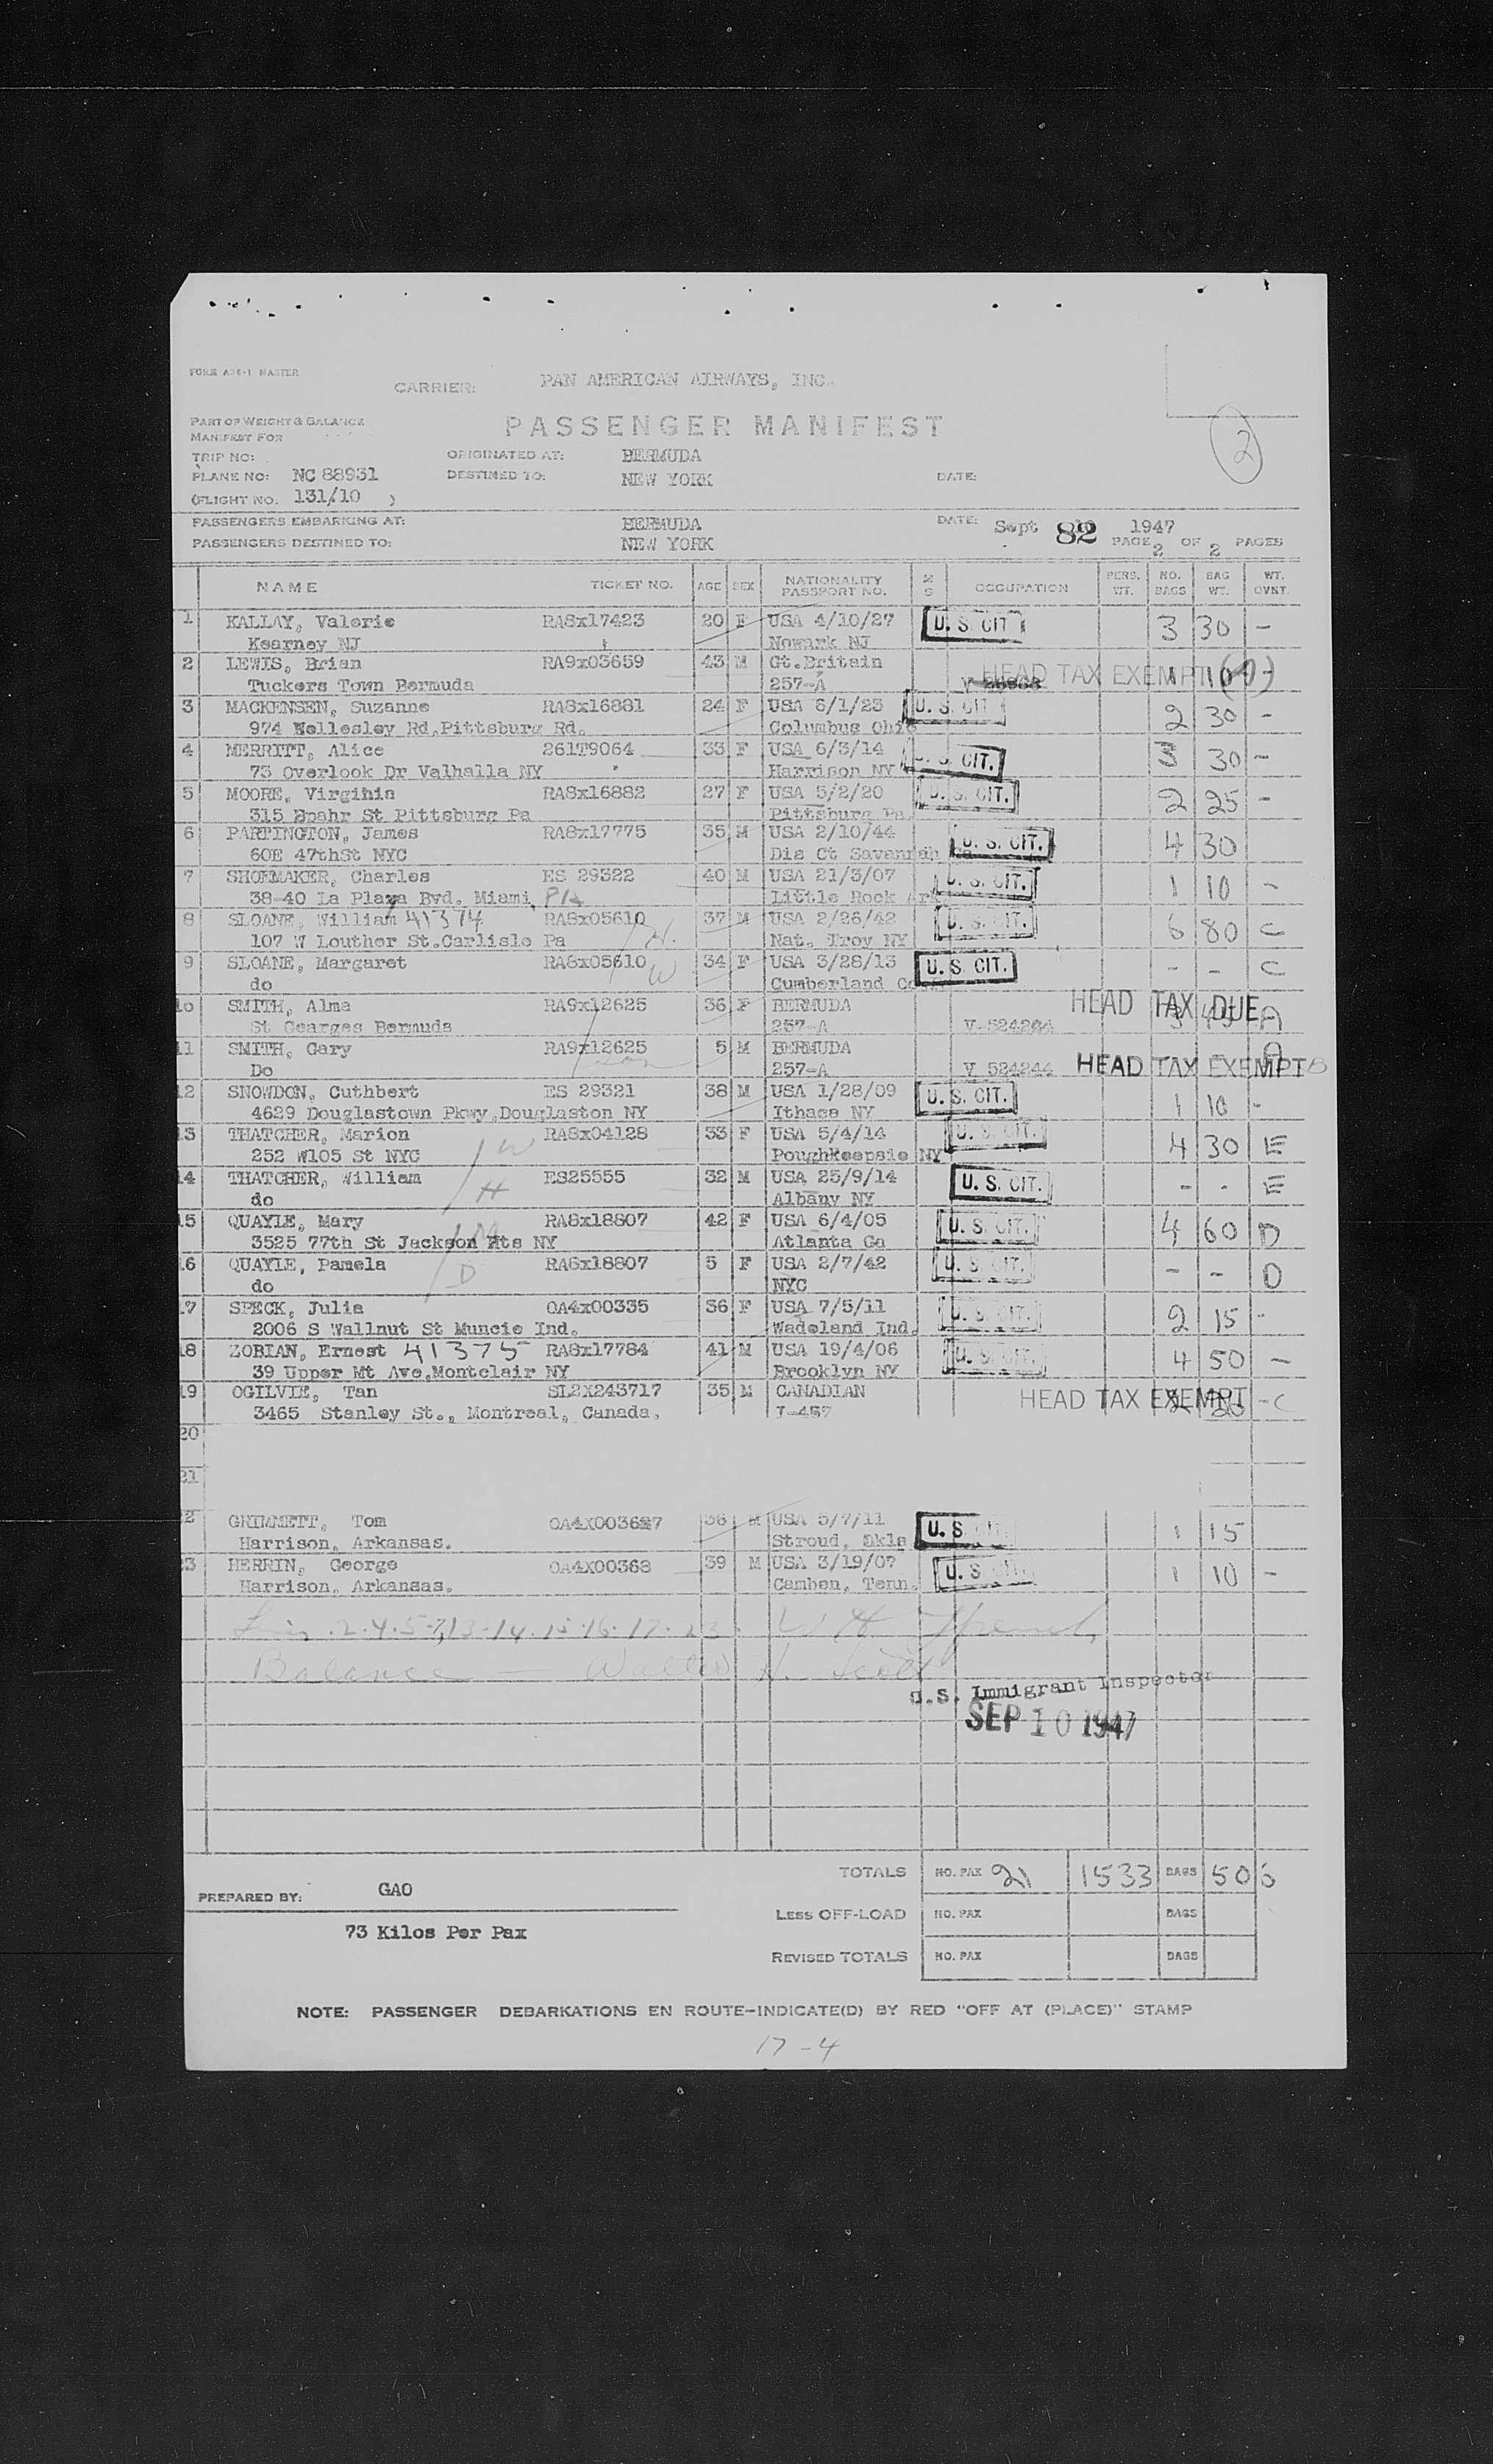 FORM A36-1 MASTER
CARRIER: PAN AMERICAN AIRWAYS, INC.
PART OF WEIGHT & BALANCE
MANIFEST FOR
PASSENGER MANIFEST
2
TRIP NO: ORIGINATED AT: BERMUDA
PLANE NO: NC 88931 DESTINED TO: NEW YORK DATE:
(FLIGHT NO. 131/10 )
PASSENGERS EMBARKING AT: BERMUDA DATE: Sept 1947
PASSENGERS DESTINED TO: NEW YORK PAGE 2 OF 2 PAGES
82
NAME TICKET NO. AGE SEX NATIONALITY PASSPORT NO. M S OCCUPATION PERS. WT. NO. BAGS BAG WT. WT. OVNT.
1 KALLAY, Valerie RA8x17423 20 F USA 4/10/27 U. S. CIT 3 30 -
Kearney NJ Newark NJ
2 LEWIS, Brian RA9x03659 43 M Gt.Britain HEAD TAX EXEMPT 1 10
Tuckers Town Bermuda 257-A
3 MACKENSEN, Suzanne RA8x16881 24 F USA 6/1/23 U. S. CIT 2 30 -
974 Wellesley Rd,Pittsburg Rd. Columbus Ohio
4 MERRITT, Alice 261T9064 33 F USA 6/3/14 U. S. CIT. 3 30 -
73 Overlook Dr Valhalla NY Harrison NY
5 MOORE, Virginia RA8x16882 27 F USA 5/2/20 U. S. CIT. 2 25 -
315 Spahr St Pittsburg Pa Pittsburg Pa
6 PARTINGTON, James RA8x17775 35 M USA 2/10/44 U. S. CIT. 4 30
60E 47thSt NYC Dis Ct Savannah Ga
7 SHOEMAKER, Charles ES 29322 40 M USA 21/3/07 U. S. CIT. 1 10 -
38-40 La Plaza Bvd. Miami, Fla Little Rock Ark
8 SLOANE, William 41374 RA8x05610 H. 37 M USA 2/26/42 U. S. CIT. 6 80 C
107 W Louther St.Carlisle Pa Nat. Troy NY
9 SLOANE, Margaret RA8x05610 W 34 F USA 3/28/13 U. S. CIT. - - C
do Cumberland
10 SMITH, Alma RA9x12625 36 F BERMUDA HEAD TAX DUE 3 45 A
St Georges Bermuda 257-A
11 SMITH, Gary RA9x12625 son 5 M BERMUDA A
Do 257-A V 524244 HEAD TAX EXEMPT
12 SNOWDON, Cuthbert ES 29321 38 M USA 1/28/09 U. S. CIT. 1 10 -
4629 Douglastown Pkwy,Douglaston NY Ithaca NY
13 THATCHER, Marion W RA8x04128 33 F USA 5/4/14 U. S. CIT. 4 30 E
252 W105 St NYC Poughkeepsie NY
14 THATCHER, William H ES25555 32 M USA 25/9/14 U. S. CIT. - - E
do Albany NY
15 QUAYLE, Mary M RA8x18807 42 F USA 6/4/05 U. S. CIT. 4 60 D
3525 77th St Jackson Hts NY Atlanta Ga
16 QUAYLE, Pamela D RA8x18807 5 F USA 2/7/42 U. S. CIT. - - D
do NYC
17 SPECK, Julia OA4x00335 36 F USA 7/5/11 U. S. CIT. 2 15 -
2006 S Wallnut St Muncie Ind. Wadeland Ind.
18 ZOBIAN, Ernest 41375 RA8x17784 41 M USA 19/4/06 U. S. CIT. 4 50 -
39 Upper Mt Ave,Montclair NY Brooklyn NY
19 OGILVIE, Tan SL2X243717 35 M CANADIAN HEAD TAX EXEMPT - C
3465 Stanley St., Montreal, Canada.
20
21
22 GRIMMETT, Tom 36 M USA 5/7/11 U. S. 1 15
Harrison, Arkansas. Stroud, Okla
23 HERRIN, George OA4X00368 39 M USA 3/19/07 U. S. 1 10 -
Harrison, Arkansas. Camben, Tenn.
Balance — Walter H. Scott
U.S. Immigrant Inspector
SEP 10 1947
TOTALS NO. PAX 21 1533 BAGS 50
PREPARED BY: GAO
LESS OFF-LOAD NO. PAX BAGS
73 Kilos Per Pax
REVISED TOTALS NO. PAX BAGS
NOTE: PASSENGER DEBARKATIONS EN ROUTE-INDICATE(D) BY RED "OFF AT (PLACE)" STAMP
17-4